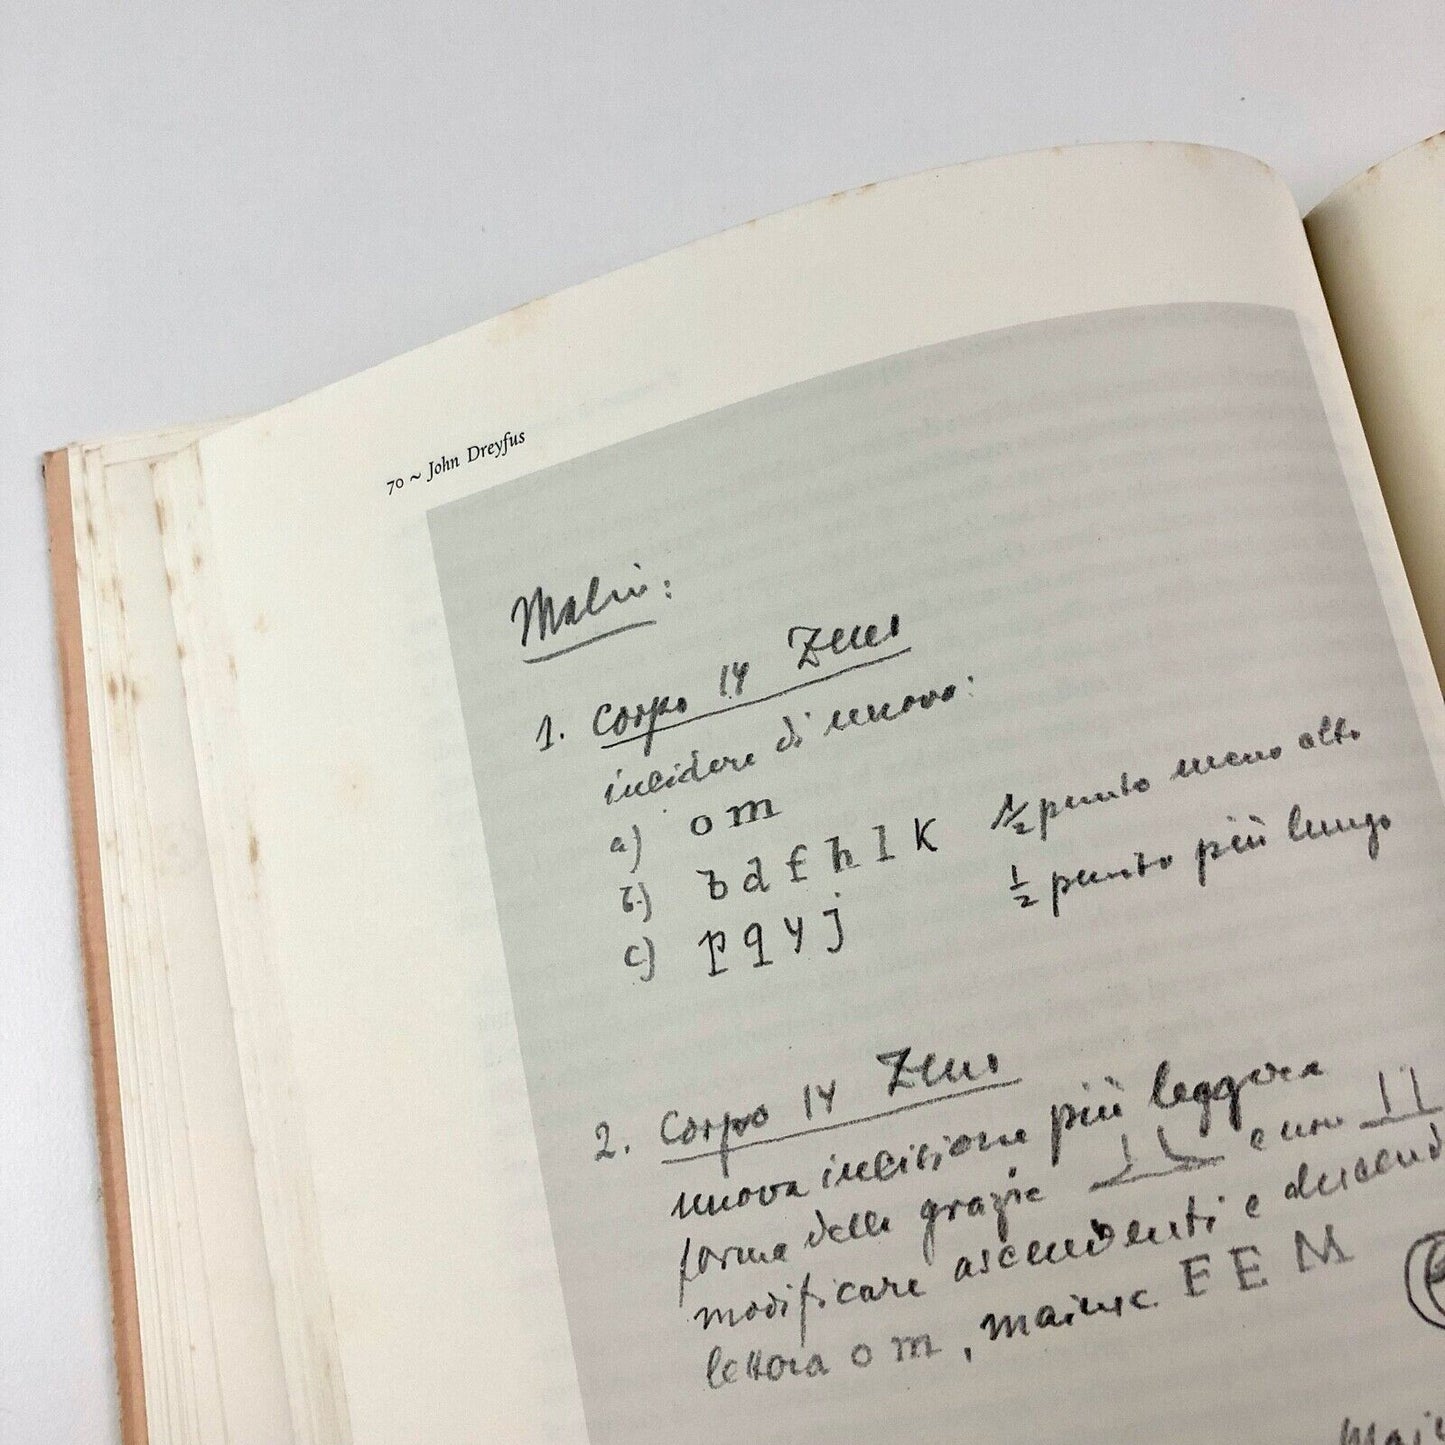 70 ~ John Dreyfus
1. Corpo 14 Zeus
incidere di nuovo:
a) o m
b) b d f h l k ½ punto meno alto
c) p q y j ½ punto più lungo
2. Corpo 14 Zeus
nuova incisione più leggera
forma delle grazie e non
modificare ascendenti e discend
lettera o m, maiusc. F E M